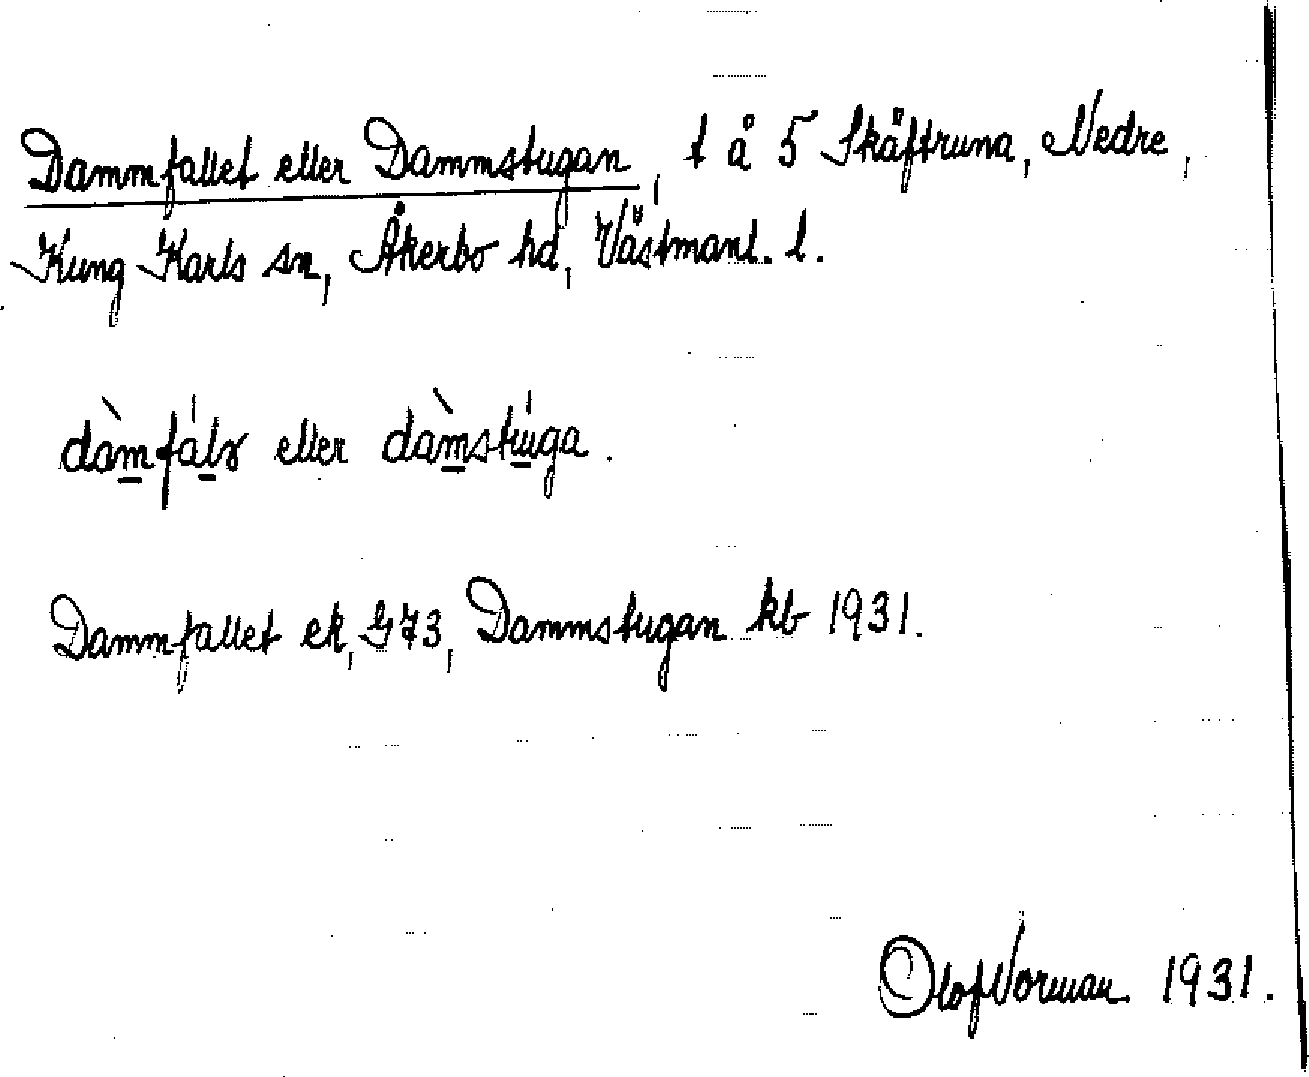 Dammfallet eller Dammstugan, t å 5 Skäftruna, Nedre,
Kung Karls sn, Åkerbo hd, Västmanl. l.
dàmfálə eller dàmstúga.
Dammfallet ek, G73, Dammstugan kb 1931.
Olof Norman 1931.